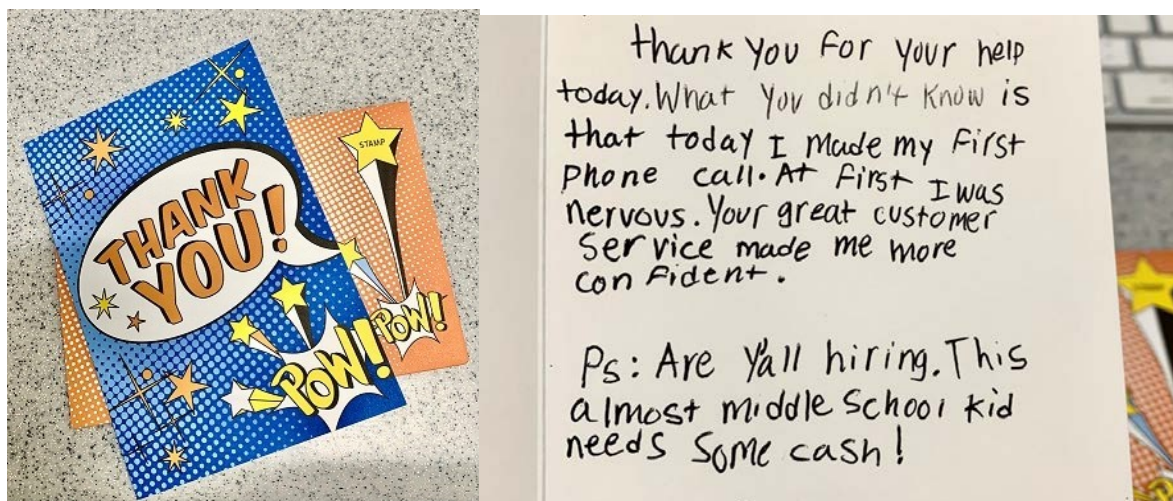 THANK
YOU!
POW!
STAMP
POW!
thank you for your help
today. What you didn't know is
that today I made my first
phone call. At first I was
nervous. Your great customer
service made me more
confident.
Ps: Are Y'all hiring. This
almost middle school kid
needs some cash!